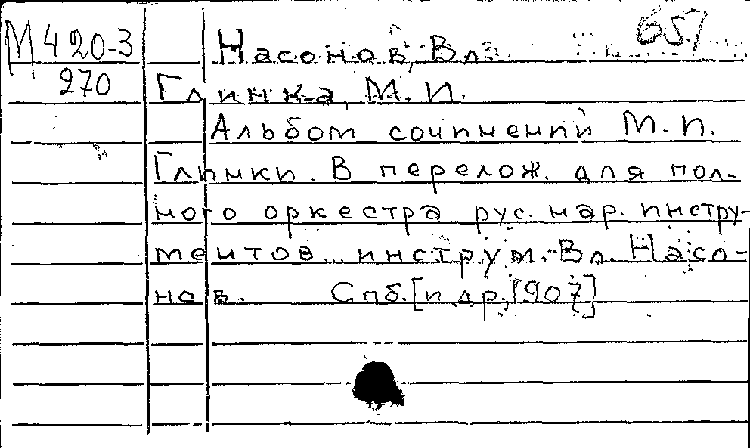 М 420-3 Насонов, Вл. 651
270 Глинка, М. И.
Альбом сочинений М. И.
Глинки. В перелож. для пол-
ного оркестра рус. нар. инстру-
ментов. инструм. Вл. Насо-
нов. Спб. [и др., 1907]